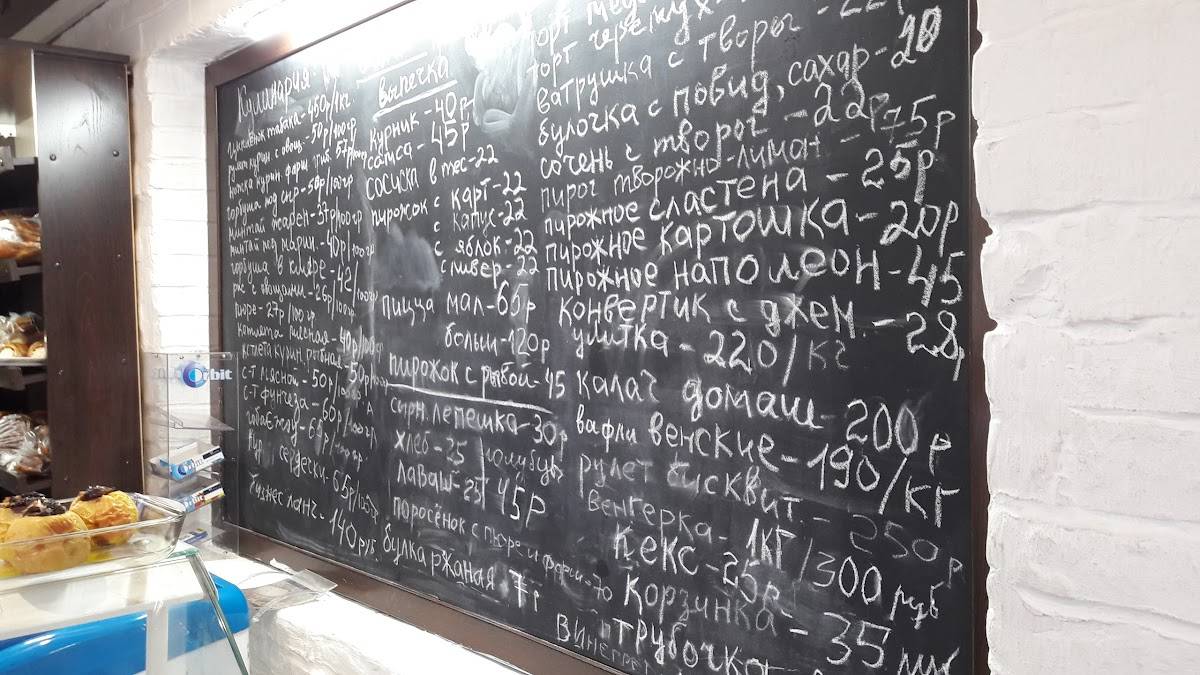 Кулинария
Цыплёнок табака - 450р/1кг.
рулет курин. с овощ - 50р/100гр
ножка курин. фарш. 57р/100гр
горбуша под сыр - 56р/100гр
минтай жарен - 37р/100гр
минтай под марин - 40р/100гр
горбуша в кляре - 42/100гр
рис с овощами - 26р/100гр
пюре - 27р/100гр
котлета мясная - 40р/100гр
котлета курин, рыбная - 50р/100гр
с-т мясной - 50р/100гр
с-т фунчеза - 60р/100гр
сердечки - 65р/100гр
бизнес ланч - 140 руб
выпечка
курник - 40р
самса - 45р
сосиска в тес - 22
пирожок с карт - 22
с капус - 22
с яблок - 22
с ливер - 22
пицца мал - 65р
больш - 120р
пирожок с рыбой - 45
сырн. лепешка - 30р
хлеб - 25
лаваш - 25
45р
поросёнок с пюре и фарш - 70
булка ржаная 7р
торт
торт
ватрушка с творы - 22
булочка с повид, сахар - 20
сочень с творог - 22
пирог творожно-лиман - 75р
пирожное сластена - 25р
пирожное картошка - 20р
пирожное наполеон - 45
конвертик с джем. - 28р
улитка - 220/кг
калач домаш - 200р
вафли венские - 190/кг
рулет бисквит - 250р
венгерка - 1кг/300 руб
кекс - 25р
корзинка - 35
трубочка
Винегрет
Orbit